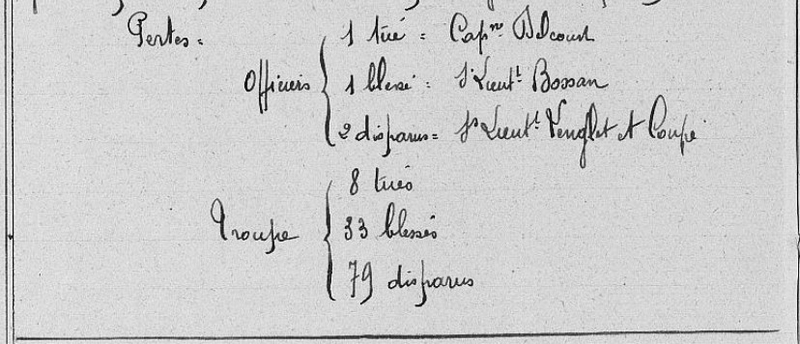 Pertes :
Officiers { 1 tué : Capne Delcourt
1 blessé : S/Lieutt Bossan
2 disparus = Ss Lieutt Venglet et Coupé
Troupe { 8 tués
33 blessés
79 disparus